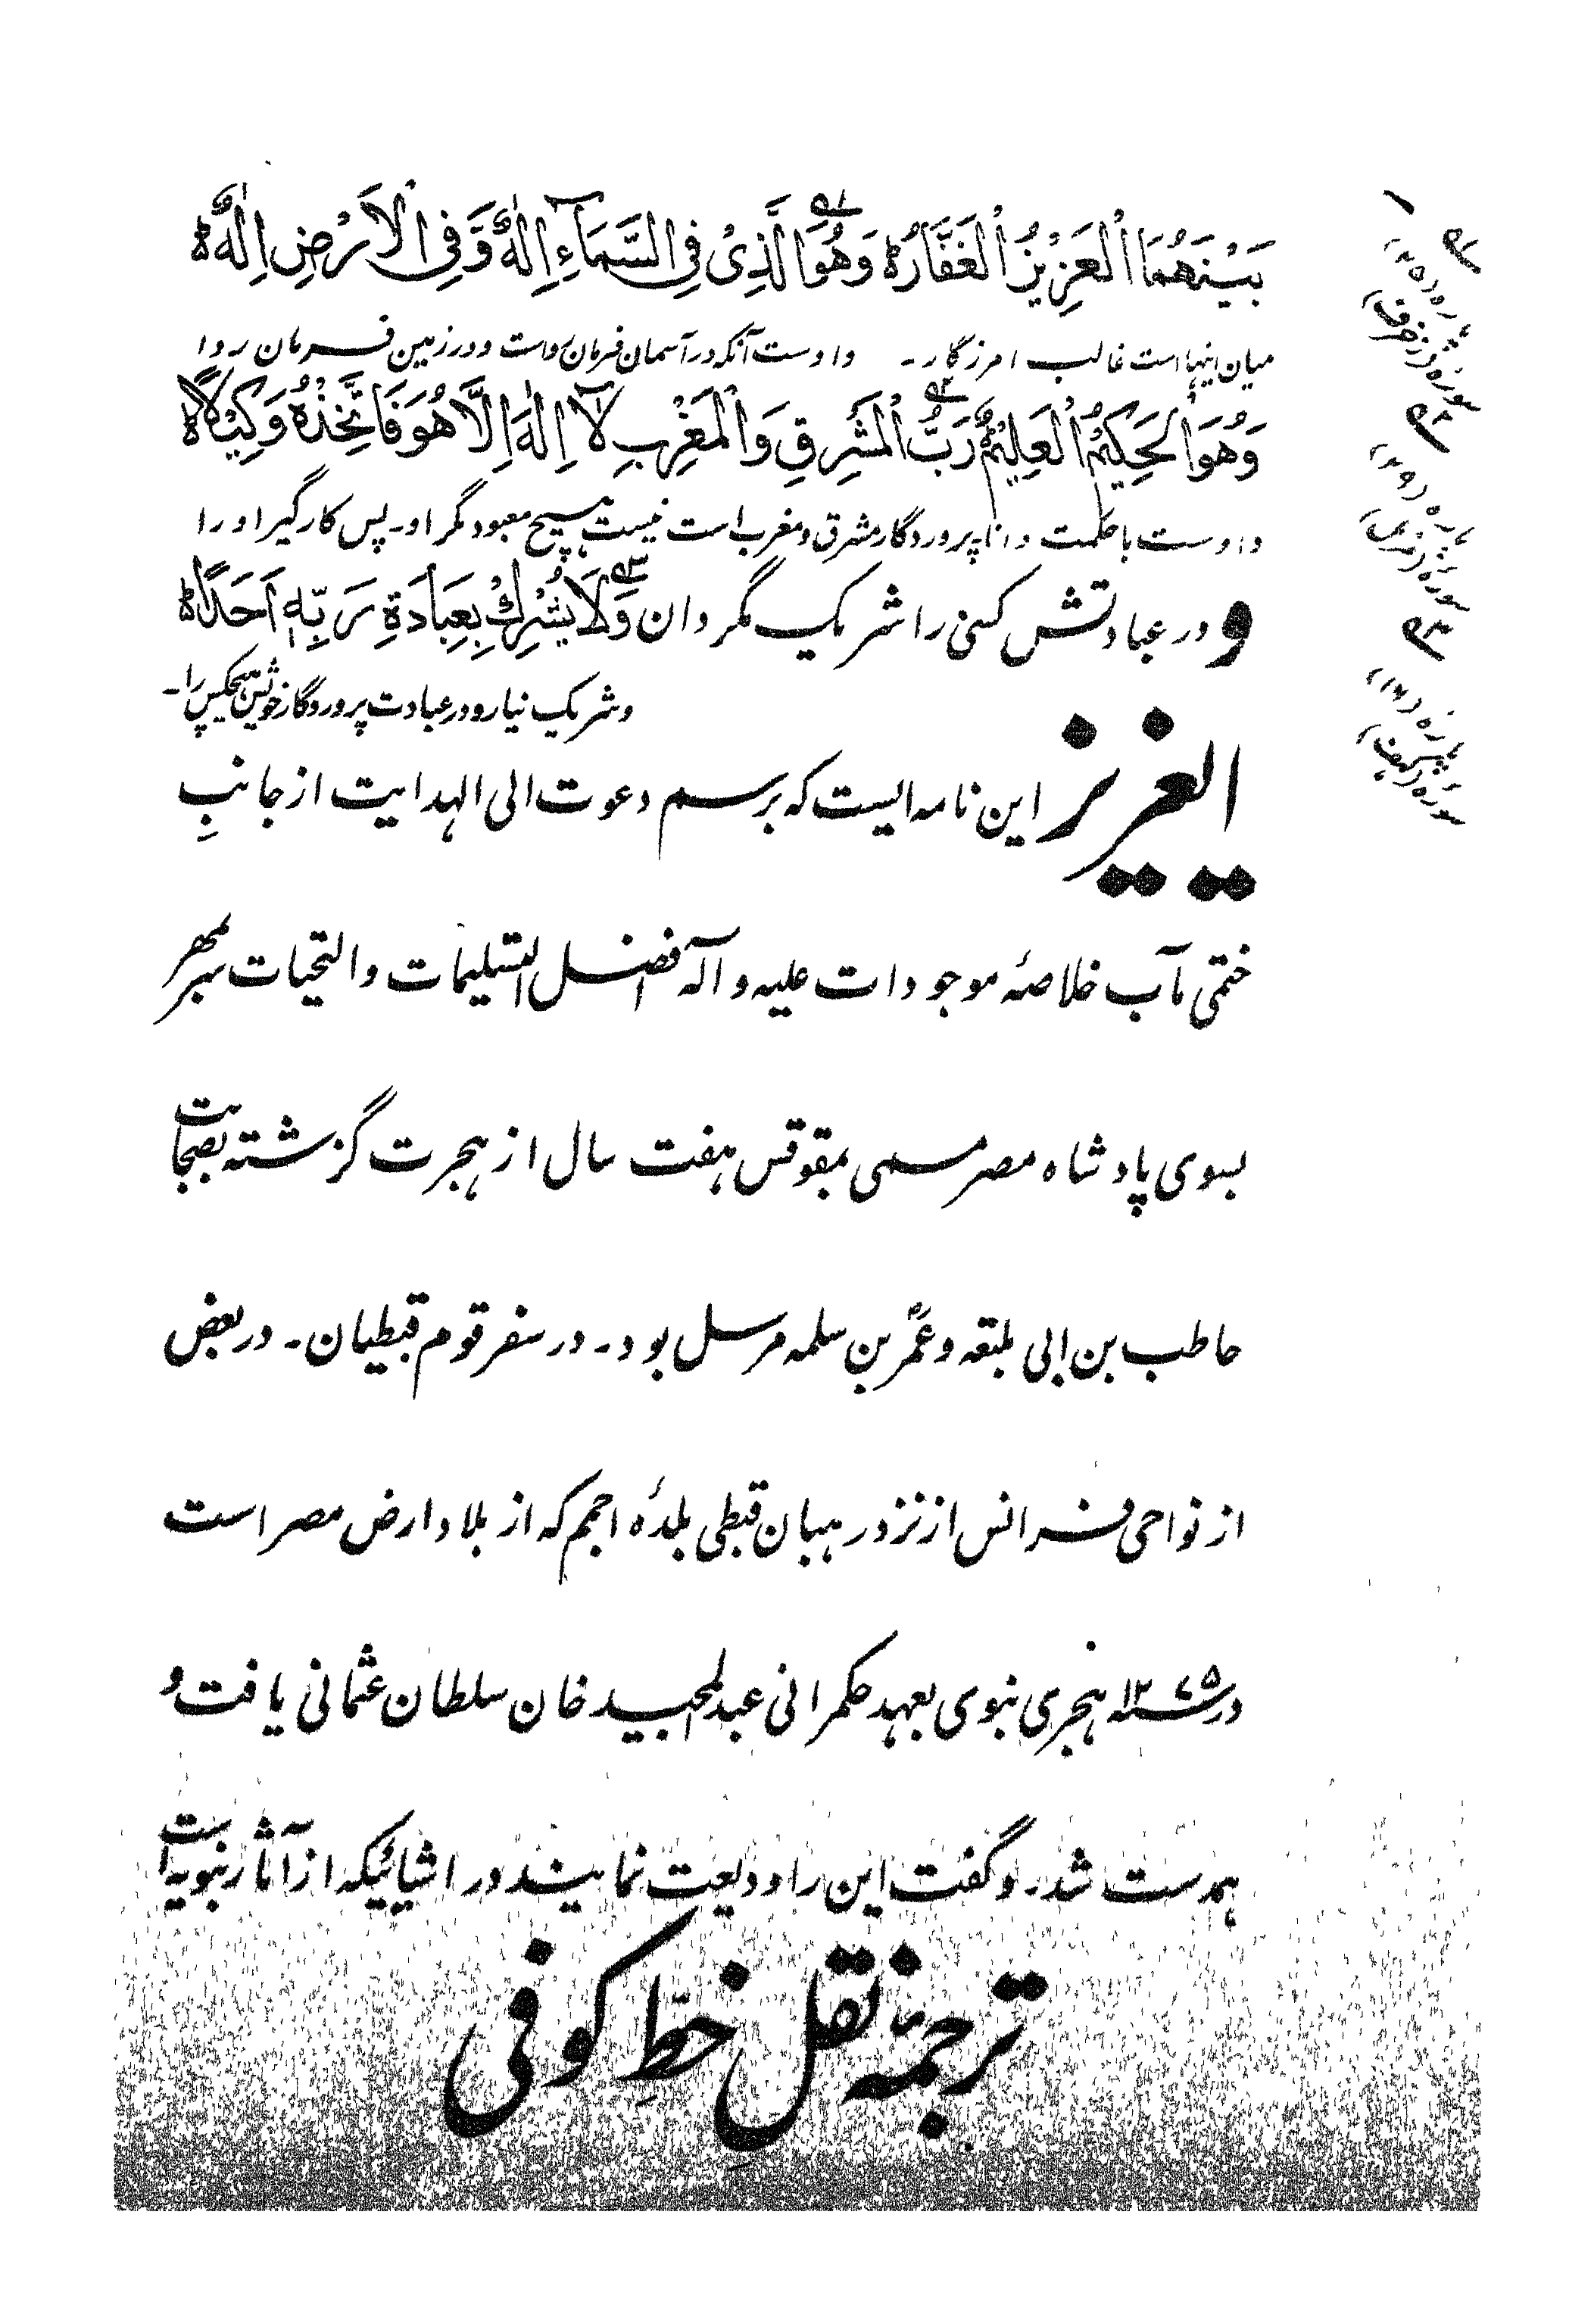 بَيْنَهُمَا الْعَزِيْزُ الْغَفَّارُ ۵ وَهُوَ الَّذِىْ فِى السَّمَآءِ اِلٰهٌ وَّفِى الْاَرْضِ اِلٰهٌ ۵
میان اینهاست غالب امرزگار۔ و اوست آنکه در آسمان فرمان رواست و در زمین فرمان روا
وَهُوَ الْحَكِيْمُ الْعَلِيْمُ رَبُّ الْمَشْرِقِ وَالْمَغْرِبِ لَآ اِلٰهَ اِلَّا هُوَ فَاتَّخِذْهُ وَكِيْلًا ۵
و اوست باحکمت دانا۔ پروردگار مشرق و مغرب است نیست هیچ معبود مگر او۔ پس کارگیر او را
و در عبادتش کسی را شریک مگردان وَلَا يُشْرِكْ بِعِبَادَةِ رَبِّهٖ اَحَدًا ۵
و شریک نیارد در عبادت پروردگار خویش هیچکس را۔
ایعزیز این نامه ایست که برسم دعوت الی الهدایت از جانبِ
ختمی مآب خلاصۂ موجودات علیه و آله افضل التسلیمات والتحیات بمهر
بسوی پادشاه مصر مسمی بمقوقس هفت سال از هجرت گزشته بصحابت
حاطب بن ابی بلتعه و عمر بن سلمه مرسل بود۔ در سفر قوم قبطیان۔ در بعض
از نواحی فرانس از نزد رهبان قبطی بلدۂ اخمم که از بلاد ارض مصر است
در ۱۲۷۵ هجری نبوی بعهد حکمرانی عبدالمجید خان سلطان عثمانی یافت و
همدست شد۔ و گفت این را ودیعت نمایند در اشیائیکه از آثار نبویه است
ترجمه نقل خطِّ کوفی
۱
پاره (۲۵)
سورۂ (زخرف)
۲
پاره (۲۹)
سورۂ (مزمل)
۳
پاره (۱۶)
سورۂ (کهف)